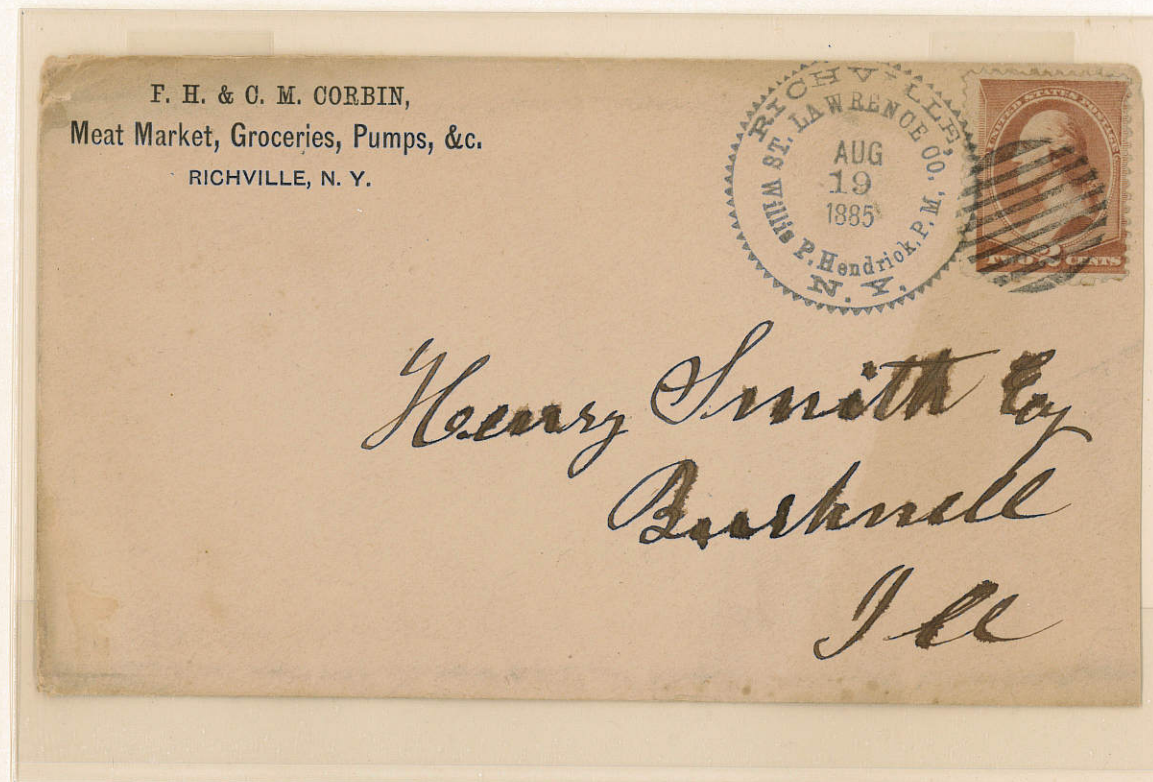 F. H. & C. M. CORBIN,
Meat Market, Groceries, Pumps, &c.
RICHVILLE, N. Y.
RICHVILLE,
ST. LAWRENCE CO.
AUG
19
1885
Willis P. Hendrick, P. M.
N. Y.
UNITED STATES POSTAGE
TWO 2 CENTS
Henry Smith Esq
Bushnell
Ill